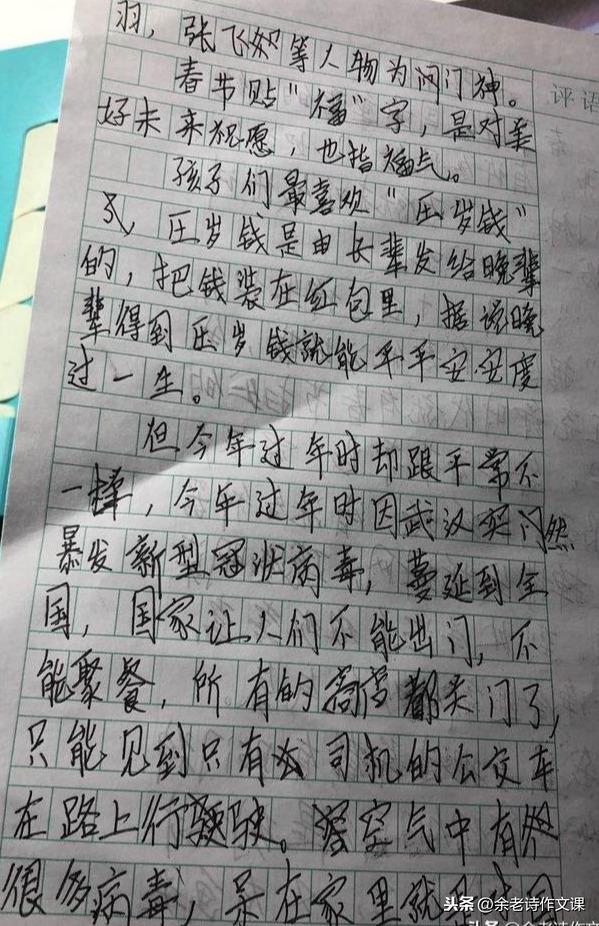 羽，张飞等人物为门神。
春节贴"福"字，是对美
好未来祝愿，也指福气。
孩子们最喜欢"压岁钱"
了，压岁钱是由长辈发给晚辈
的，把钱装在红包里，据说晚
辈得到压岁钱就能平平安安度
过一生。
但今年过年时却跟平常不
一样，今年过年时因武汉突然
暴发新型冠状病毒，蔓延到全
国，国家让人们不能出门，不
能聚餐，所有的商店都关门了，
只能见到只有司机的公交车
在路上行驶。空气中有
很多病毒，呆在家里就
评语
头条@余老诗作文课